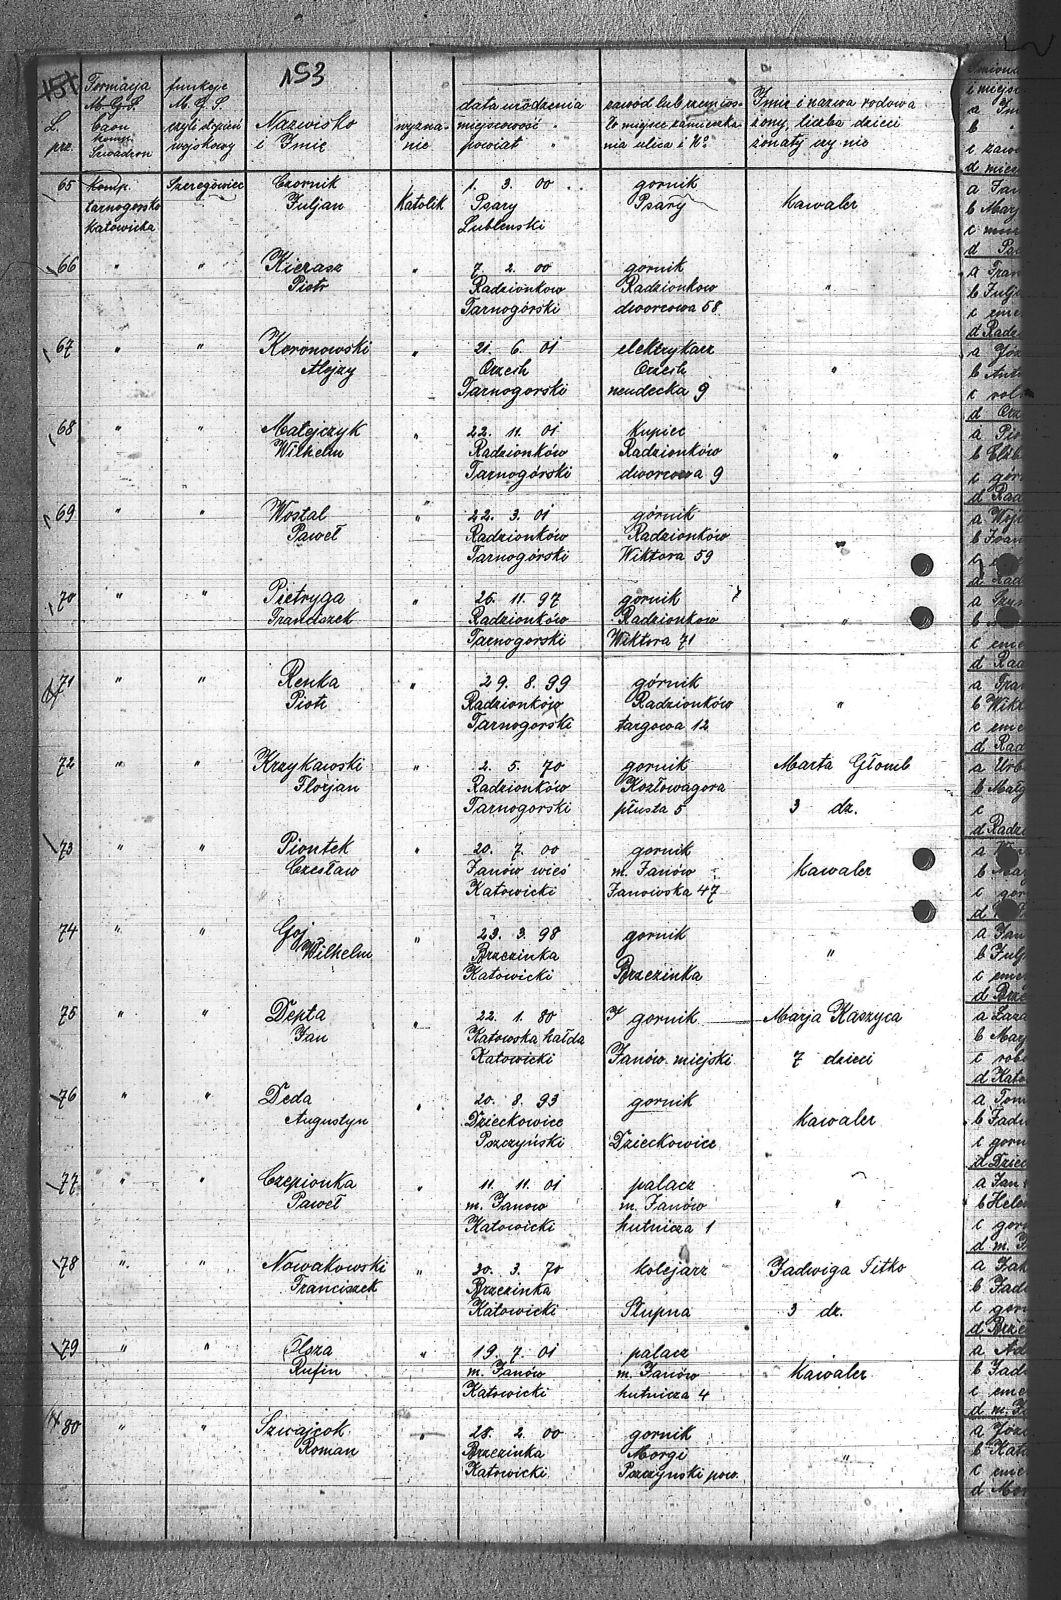 153
Formacja
M.G.S.
baon
komp.
Szwadron
L
prz.
funkcje
M. G. S.
czyli stopień
wojskowy
Nazwisko
i Imie
wyzna-
nie
data urodzenia
miejscowość "
powiat "
zawód lub rzemios-
ło miejsce zamieszka
nia ulica i No
Imie i nazwa rodowa
żony, liczba dzieci
żonaty czy nie
65 Komp. Szeregowiec Czornik 1. 3. 00 gornik
tarnogorsko Juljan Katolik Psary Psary kawaler
katowicka Lublenski
66 " " Kierasz " 7. 2. 00 gornik
Piotr Radzionkow Radzionkow "
Tarnogórski dworcowa 58
67 " " Koronowski " 21. 6. 01 elektrykarz
Alojzy Orzech Orzech "
Tarnogorski neudecka 9
68 " " Matejczyk " 22. 11. 01 kupiec
Wilhelm Radzionków Radzionków "
Tarnogórski dworcowa 9
69 " " Wostal " 22. 3. 01 górnik
Paweł Radzionków Radzionków "
Tarnogórski Wiktora 59
70 " " Pietryga " 26. 11. 97 gornik
Franciszek Radzionków Radzionkow "
Tarnogorski Wiktora 71
71 " " Renka " 29. 8. 99 górnik
Piotr Radzionków Radzionków "
Tarnogorski targowa 12
72 " " Krzykawski " 2. 5. 70 gornik Marta Głomb
Florjan Radzionków Kozłowagora
Tarnogorski płusta 5 3 dz.
73 " " Piontek " 20. 7. 00 gornik
Czesław Janów wieś m. Janów kawaler
Katowicki Janowska 47
74 " " Goj " 23. 3. 98 gornik
Wilhelm Brzezinka "
Katowicki Brzezinka
75 " " Depta " 22. 1. 80 gornik Marja Kaszyca
Jan Katowska hałda
Katowicki Janów. miejski 7 dzieci
76 " " Deda " 20. 8. 93 gornik
Augustyn Dzieckowice kawaler
Pszczyński Dzieckowice
77 " " Czepionka " 11. 11. 01 palacz
Paweł m. Janow m. Janów "
Katowicki hutnicza 1
78 " " Nowakowski " 30. 3. 70 kolejarz Jadwiga Titko
Franciszek Brzezinka
Katowicki Słupna 3 dz.
79 " " " 19. 7. 01 palacz
Rufin m. Janów m. Janów kawaler
Katowicki hutnicza 4
80 " " Szwajcok " 28. 2. 00 gornik
Roman Brzezinka Morgi "
Katowicki Pszczynski pow.